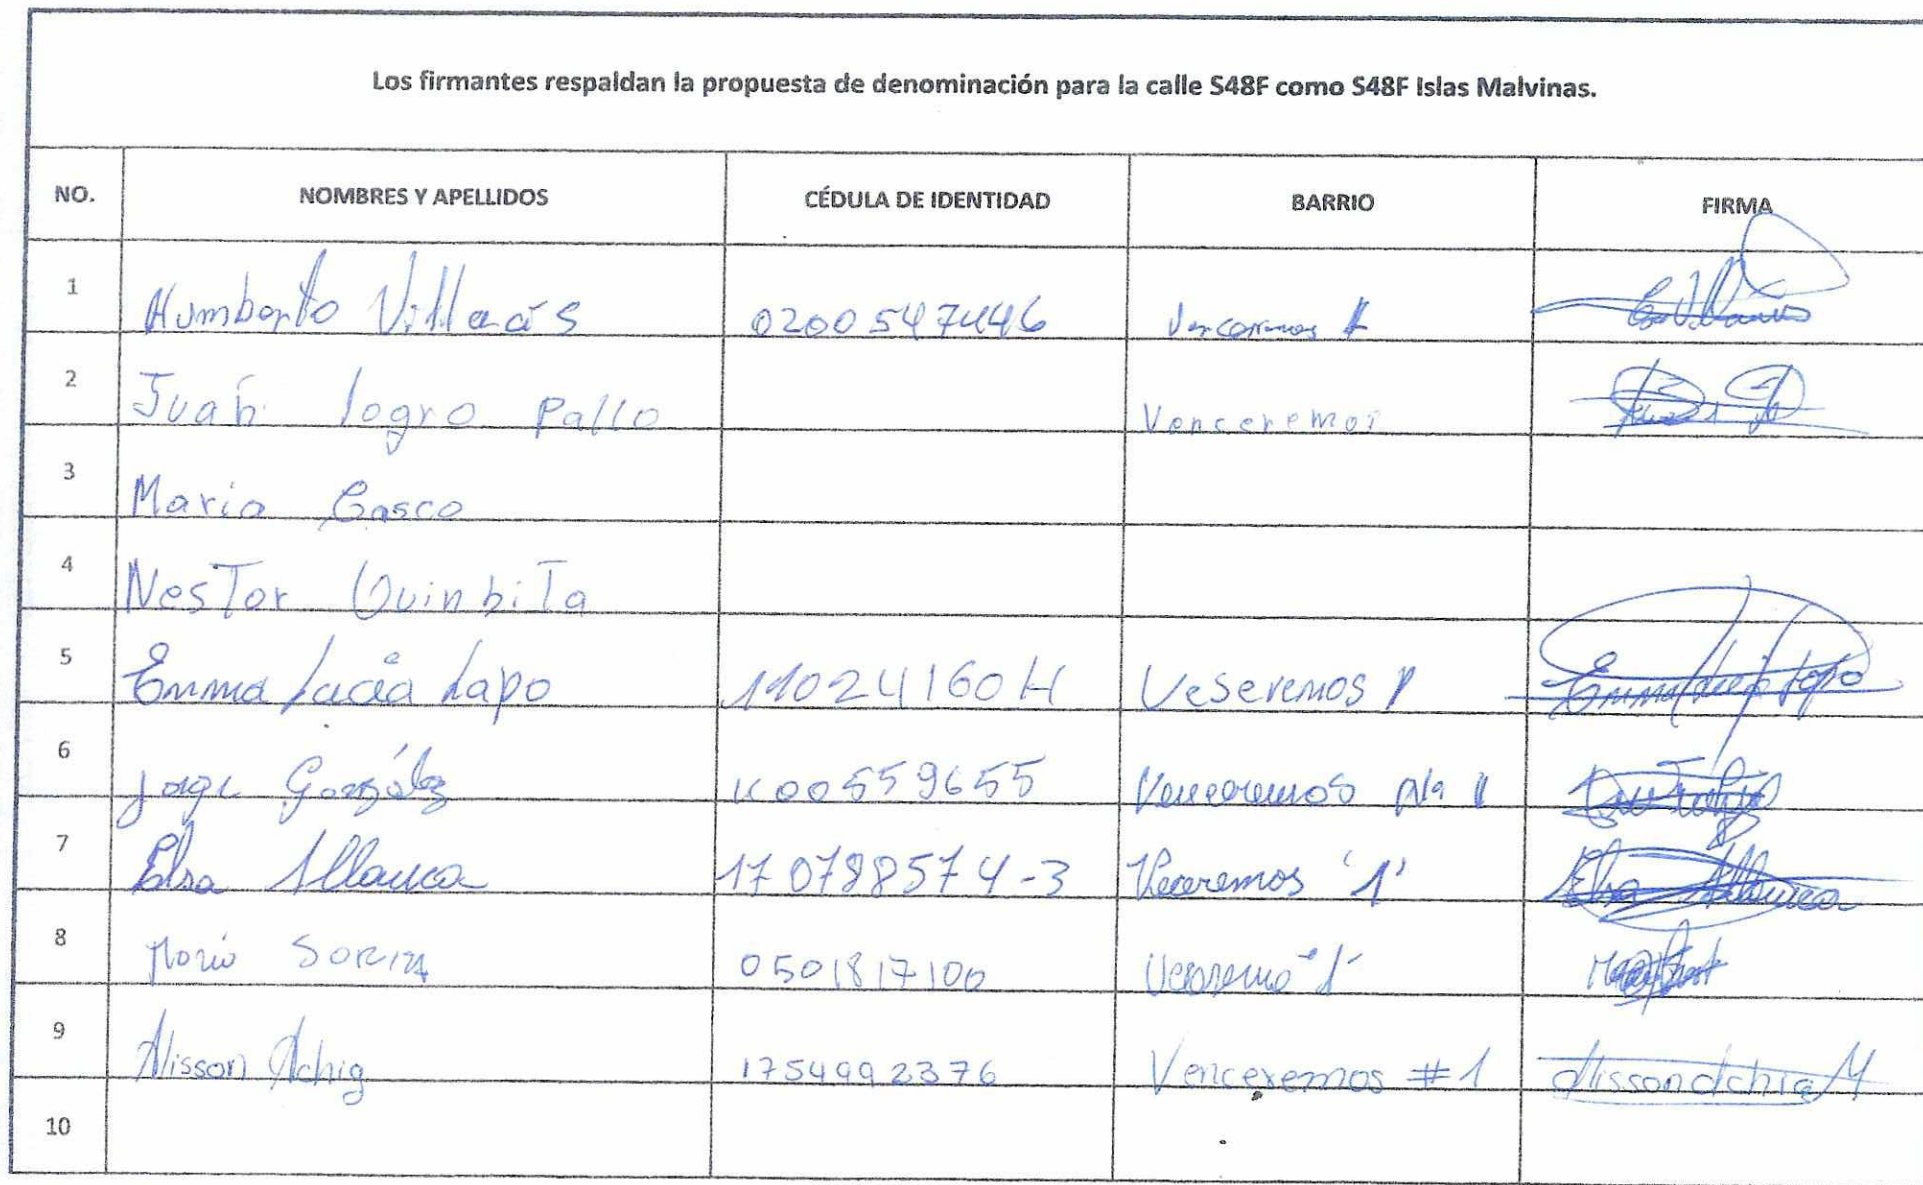 Los firmantes respaldan la propuesta de denominación para la calle S48F como S48F Islas Malvinas.
NO. NOMBRES Y APELLIDOS CÉDULA DE IDENTIDAD BARRIO FIRMA
1 Humberto Villacís 0200547446
2 Juan logro Pallo Venceremos
3 Maria Casco
4 NesTor QuinbiTa
5 Emma Lucia Lapo Veseremos 1 Emma Lucia Lapo
6 Jorge González Venceremos
7 Elsa Allauca 170788574-3 Veceremos '1' Elsa Allauca
8 0501817100
9 Alisson Achig 1754992376 Venceremos #1 Alisson Achig M
10